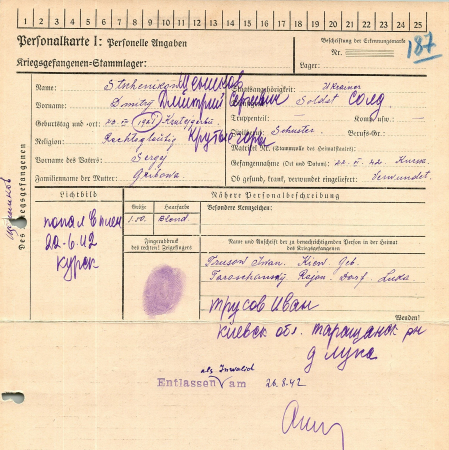 1 2 3 4 5 6 7 8 9 10 11 12 13 14 15 16 17 18 19 20 21 22 23 24 25
Personalkarte I: Personelle Angaben
Beschriftung der Erkennungsmarke
Nr. 187
Kriegsgefangenen-Stammlager:
Lager:
Des Kriegsgefangenen
Name:
Staatsangehörigkeit: Ukrainer
Vorname: Dmitry Дмитрий
Dienstgrad: Soldat Солд
Truppenteil: Kommando usw.:
Geburtstag und -ort:
Schuster Berufs-Gr.:
Religion: Rechtgläubig
Matrikel Nr. (Stammrolle des Heimatstaates):
Vorname des Vaters: Sergy
Gefangennahme (Ort und Datum): 22. II. 42 Kursk
Familienname der Mutter: Gribowa
Ob gesund, krank, verwundet eingeliefert: Verwundet.
Lichtbild
Nähere Personalbeschreibung
Größe Haarfarbe Besondere Kennzeichen:
1.50. Blond
попал в плен
22-6.42
Курск
Fingerabdruck
des rechten! Zeigefingers
Name und Anschrift der zu benachrichtigenden Person in der Heimat
des Kriegsgefangenen
Trusow Iwan. Kiew Geb.
Taraschansky Rajon. Dorf. Luka
Трусов Иван
Wenden!
Киевск обл. Таращанск рн
д Лука
als Invalid
Entlassen am 26.8.42